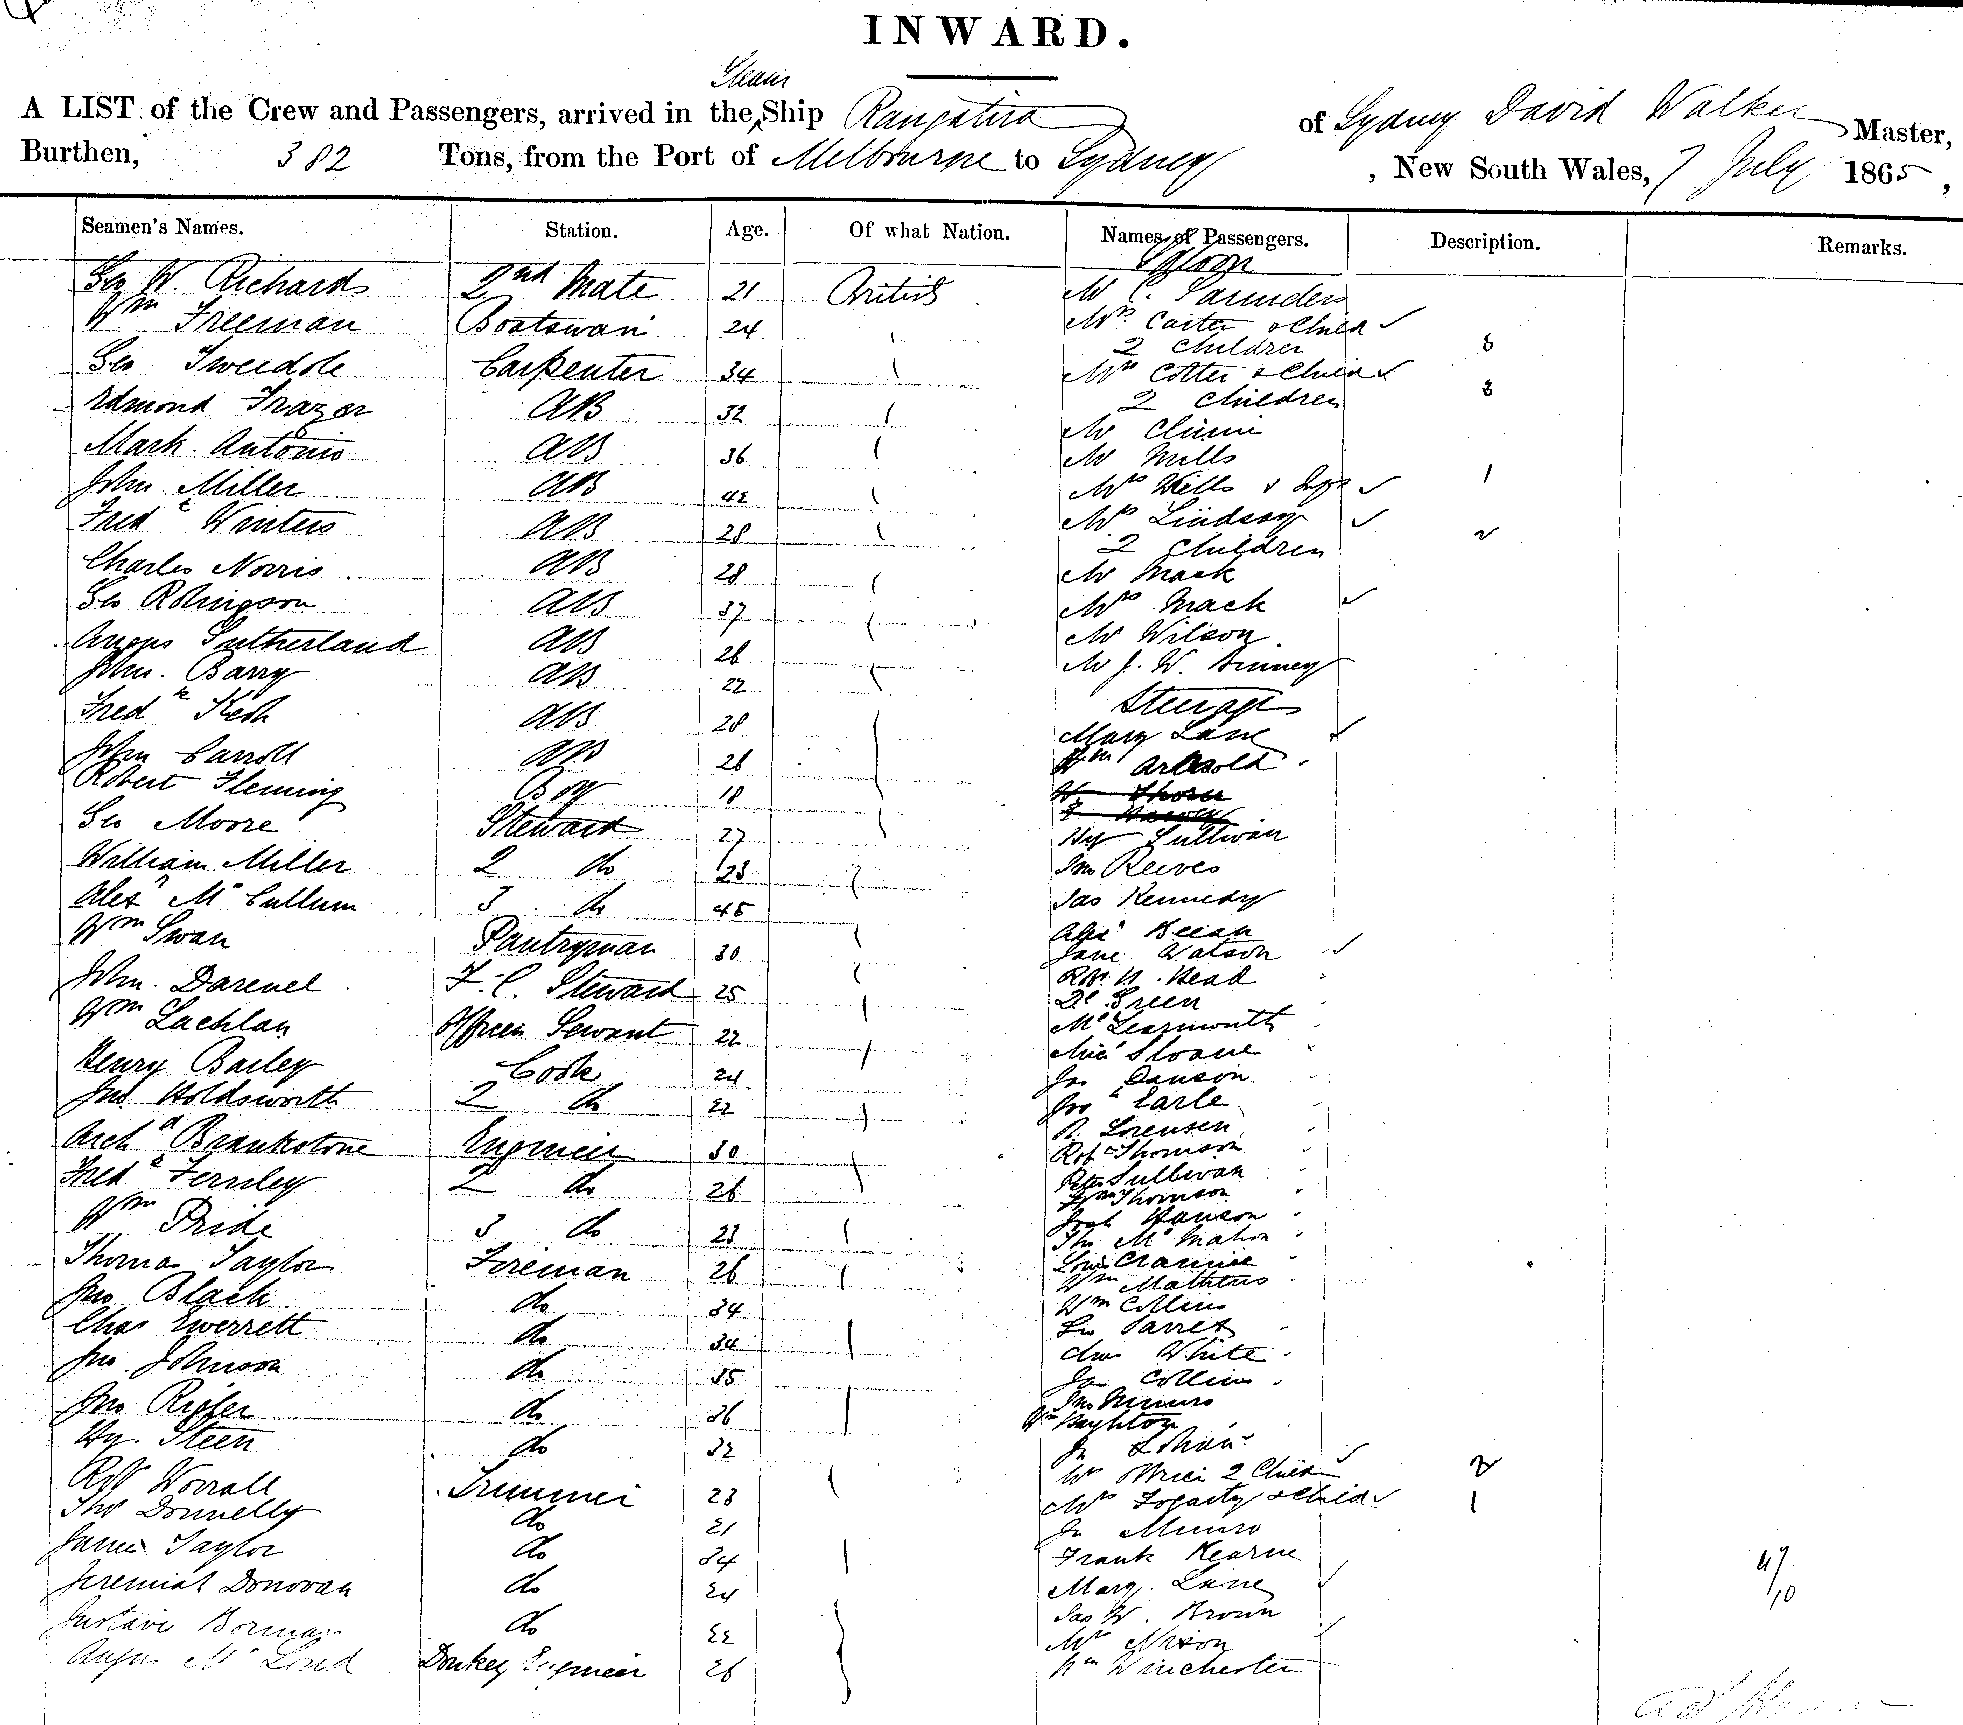 INWARD.
Steam
A LIST of the Crew and Passengers, arrived in the Ship Rangatira of Sydney David Walker Master,
Burthen, 382 Tons, from the Port of Melbourne to Sydney, New South Wales, 7 July 1865,
Seamen's Names. Station. Age. Of what Nation. Names of Passengers. Description. Remarks.
Saloon
Geo W. Richards 2nd Mate 21 British Mr C. Saunders
Wm Freeman Boatswan 24 Mrs Carter & Child
2 Children 3
Geo Tweedle Carpenter 34 Mrs Cotter & Child
2 Children 3
Edmond Frazer AB 32
Mr
Mark Antonio AB 36 Mr Mills
John Miller AB 42 Mrs Wells & 1
Fredk Winters AB 28 Mrs Lindsay
2 Children 2
Charles Norris AB 28 Mr Mack
Geo Robingson AB 37 Mrs Mack
Angus Sutherland AB 26 Mr Wilson
John Barry AB 22 Mr J. W. Binney
Steerage
Fredk AB 28 Mary Lane
John Carroll AB 26 Wm
Robert Fleming Boy 18
Geo Moore Steward 27 Hy Sullivan
William Miller 2 do 23 Jno Reeves
Alexr McCullum 3 do 45 Jas Kennedy
Wm Swan Pantryman 30 Alexr
Jane Watson
John Darenel F. C. Steward 25 Robt H. Head
Green
Wm Lachlan Officers Servant 22 Mr Learmonth
Sloane
Henry Bailey Cook 24 Jn Danson
Jno Holdsworth 2 do 22 Earle
R. Lorensen
Archd Brankstone Engineer 30 Robt Thomson
Fredk Fernley 2 do 26 Peter Sullivan
Wm Thomson
Wm Pride 3 do 23 Hanson
Thos McMahon
Thomas Taylor Fireman 26 Louis
Wm Mathews
Jno Black do 34 Wm Collins
Chas Everrett do 34 Geo
White
Jno Johnson do 35 Jn Collins
Jno Munro
Jno Rigler do 36 Wm
Hy. Steen do 32 Jn
Mr 2 Child 2
Robt Worrall Trimmer 23 Mrs Fogarty & Child 1
Thos Donnelly do 21 Jn Munro
James Taylor do 34 Frank Kearne
47/10
Jeremiah Donovan do 24 Mary Lane
Jas W. Brown
Gustave Borman do 22 Mrs Nixon
Angus Donkey Engineer 26 Wm Winchester